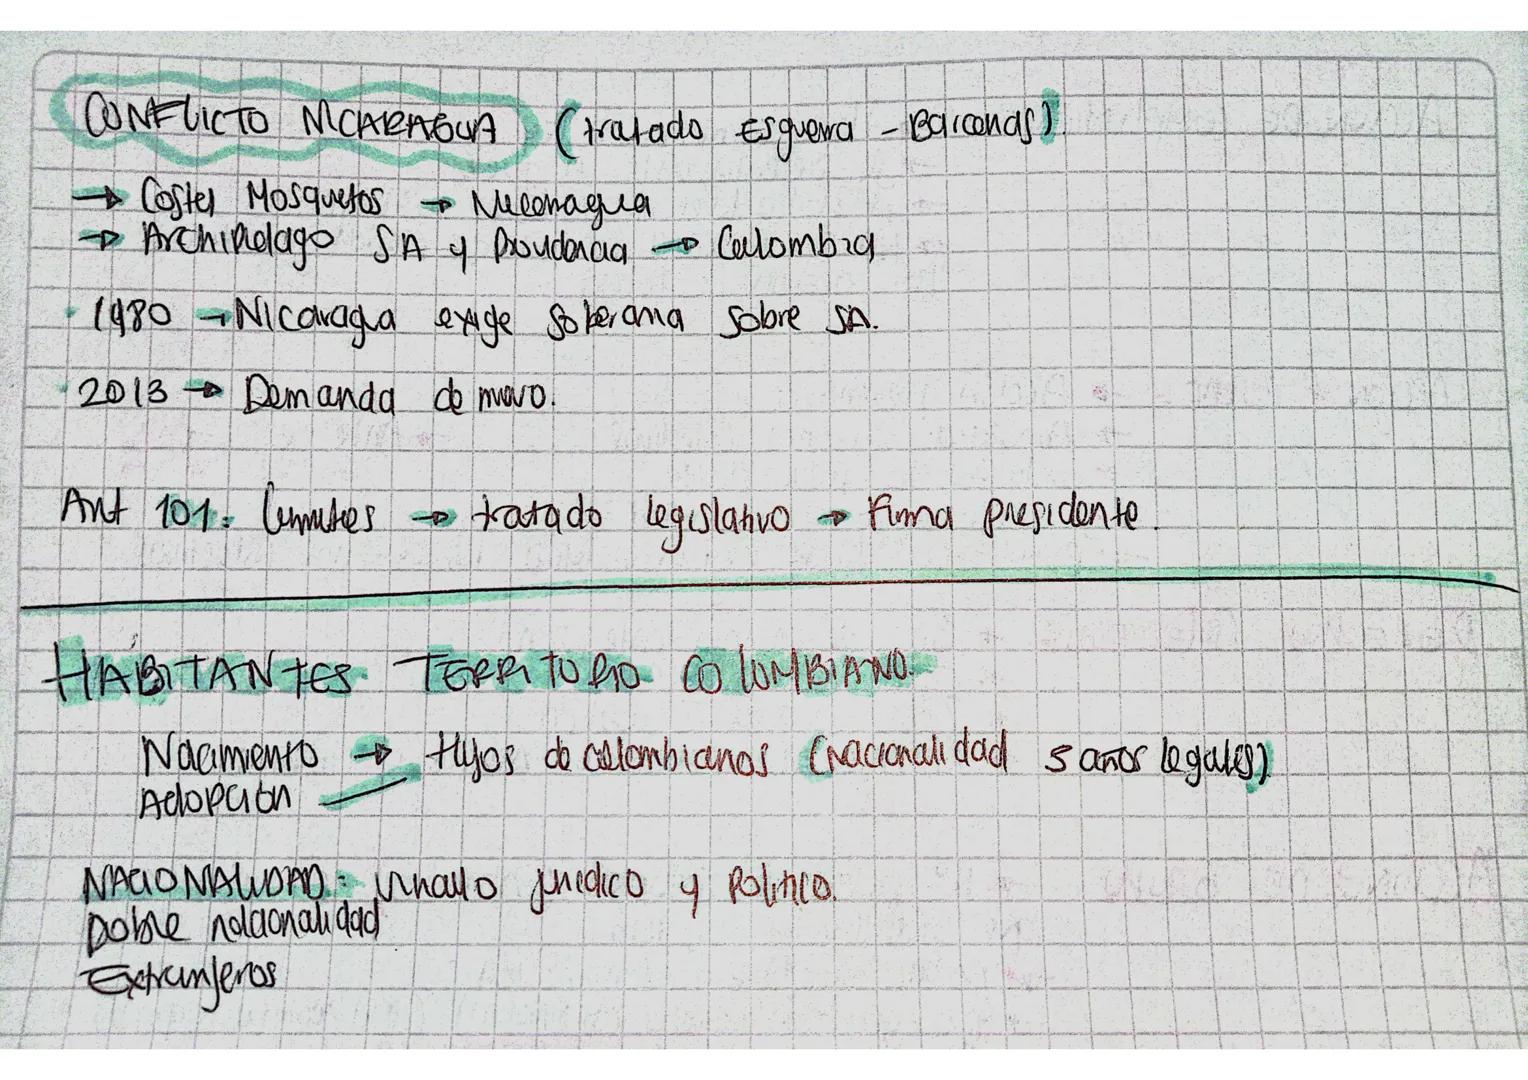 CONFLICTO NICARAGUA (tratado Esguerra - Barcenas)
→ Costa Mosquitos → Nicaragua
→ Archipielago SA y Providencia → Colombia
· 1980 → Nicaragua exige soberania sobre SA.
· 2013 → Demanda de nuevo.
Art 101: limites → tratado legislativo → Firma presidente.
HABITANTES TERRITORIO COLOMBIANO.
Nacimiento → Hijos de colombianos (nacionalidad 5 años legales)
Adopción
NACIONALIDAD: vinculo juridico y Politico.
Doble nacionalidad
Extranjeros